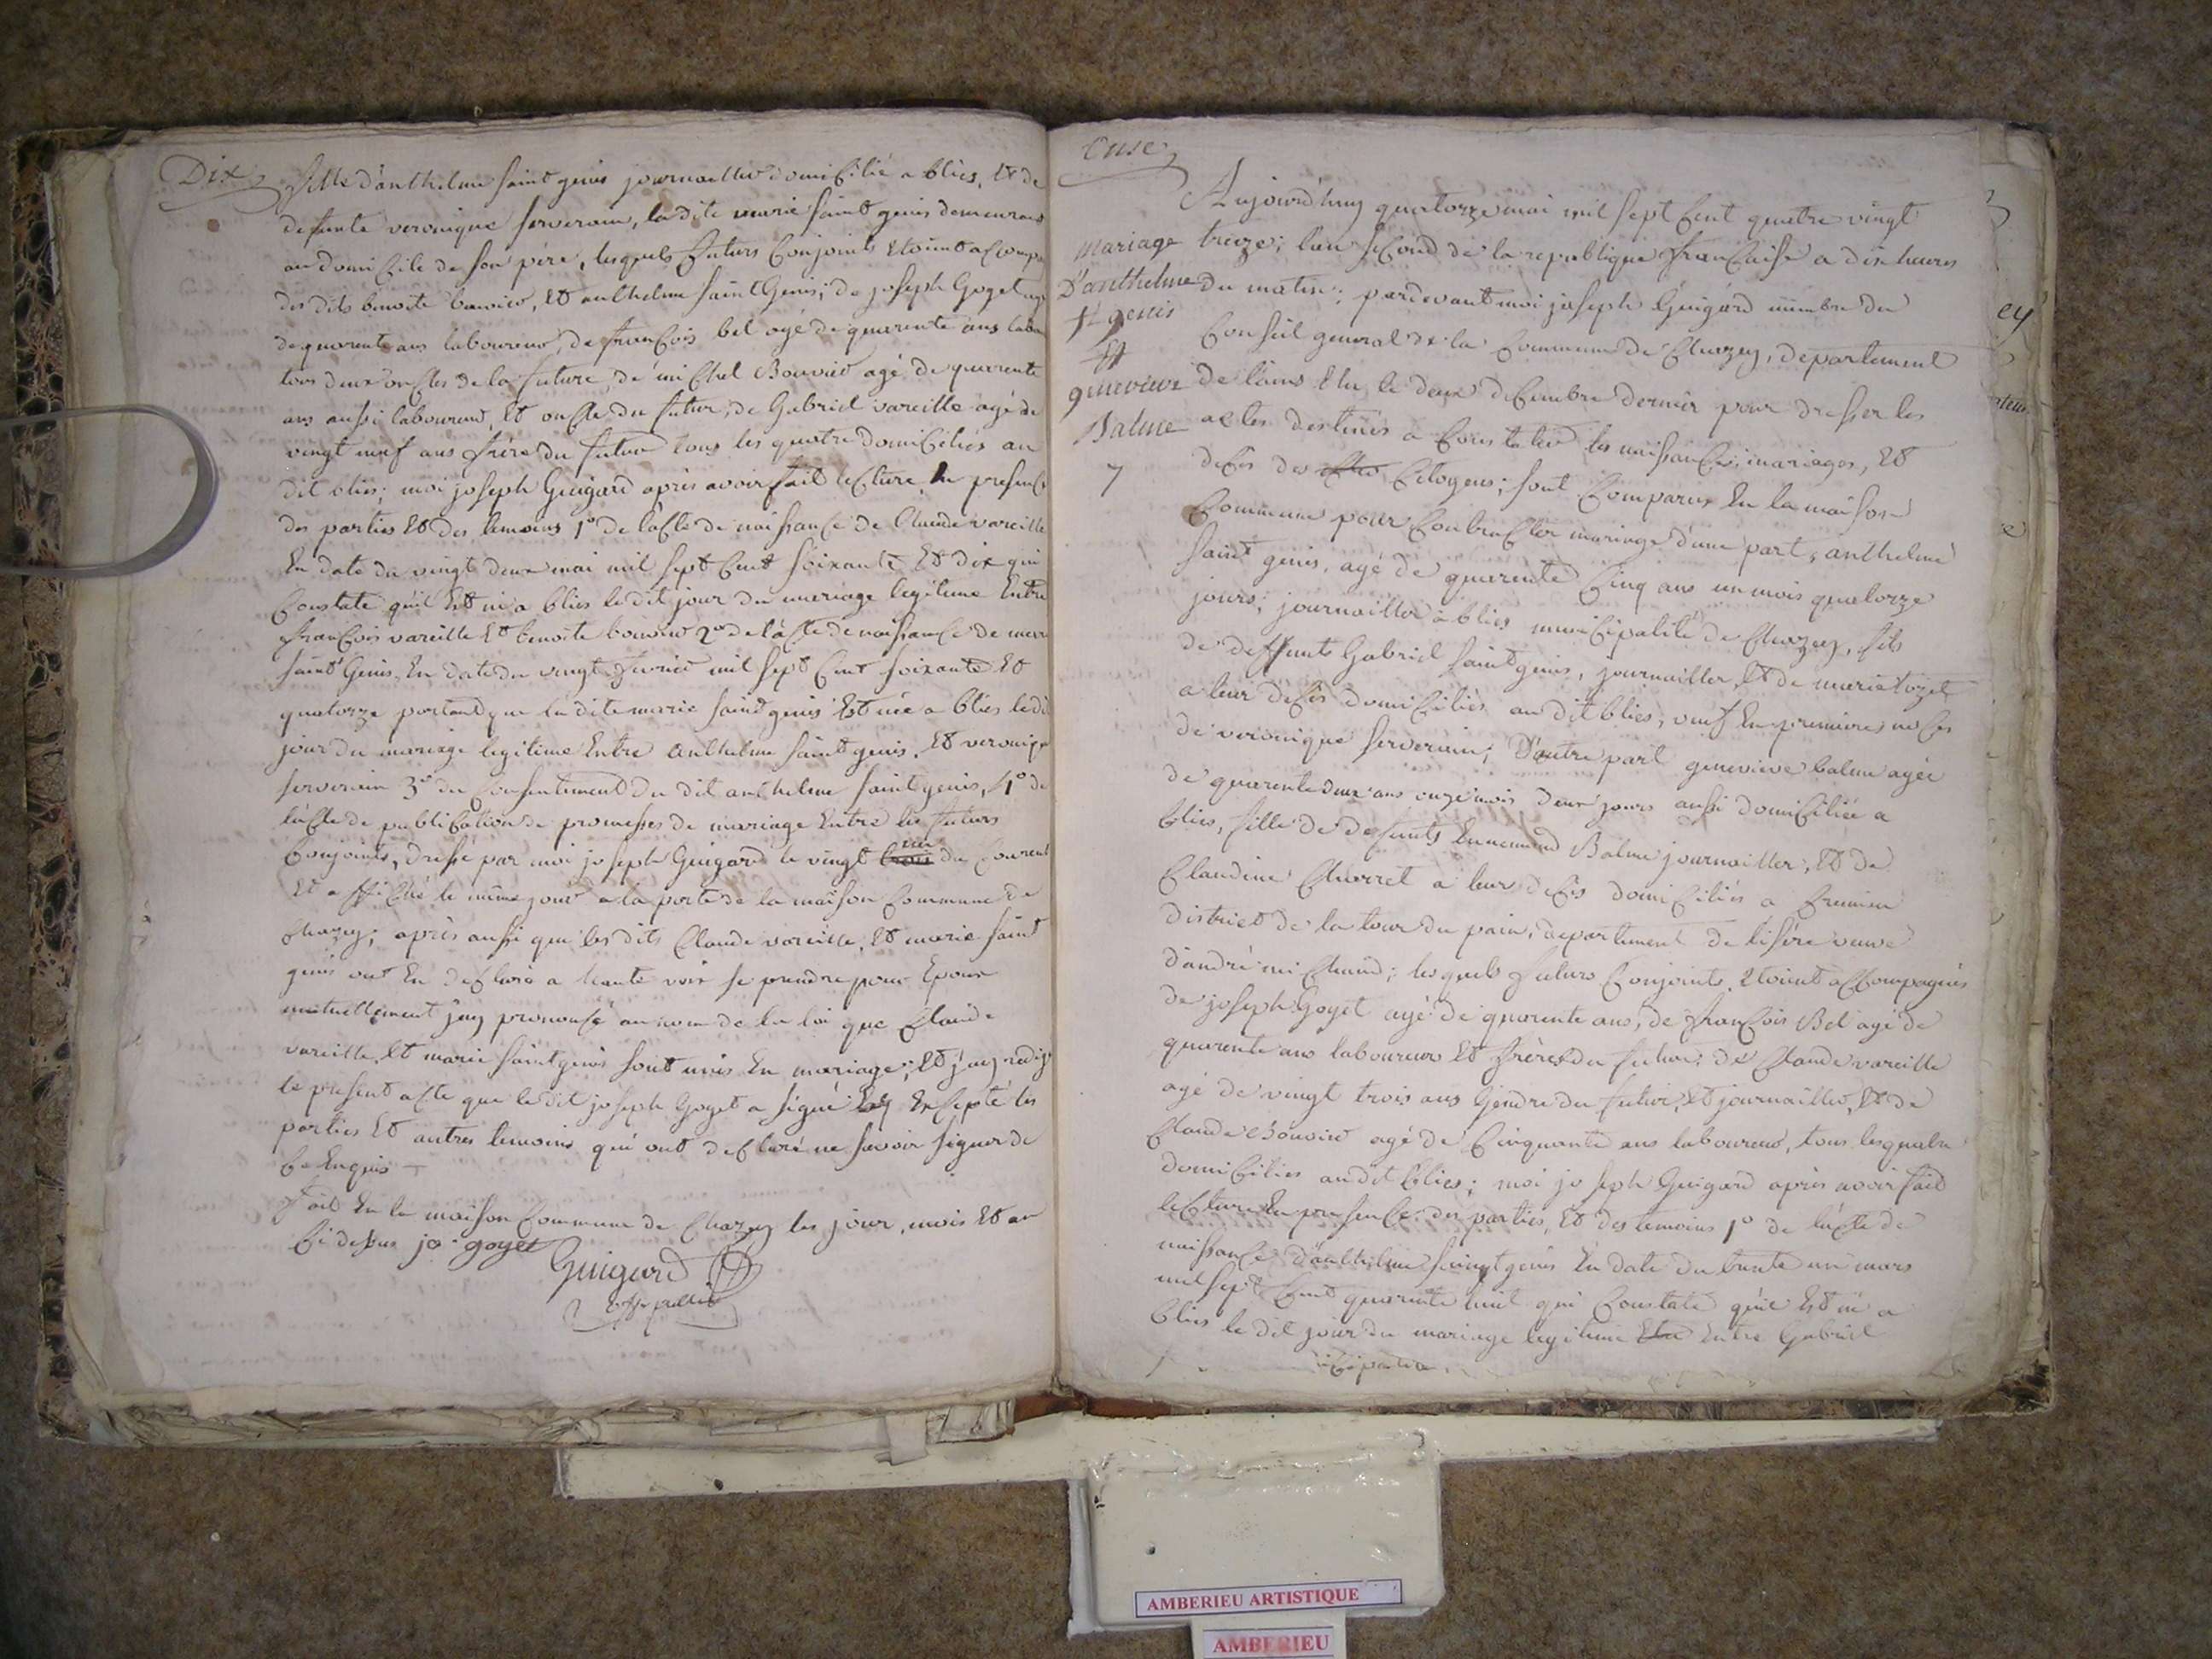 Dix
fille d'anthelme saint genis journaillier domicilié a blies, Et de
defunte veronique serverain, la dite marie saint genis demeurant
au domicile de son père, lesquels futurs Conjoints Etoint accompa
des dits benoite bouvier, Et anthelme saint Genis; de joseph Goyet agé
de quarente ans laboureur, de françois bel agé de quarente ans labou
tous deux oncles de la future, de michel Bouvier agé de quarente
ans aussi laboureur, Et oncle du futur, de Gabriel vareille agé de
vingt neuf ans frère du futur tous les quatre domiciliés au
dit blies; moi joseph Guigard après avoir fait lecture En presence
des parties Et des temoins 1º de l'acte de naissance de Claude vareille
En date du vingt deux mai mil sept Cent soixante Et dix qui
Constate qu'il Est né a blies le dit jour du mariage legitime Entre
françois vareille Et benoite bouvier 2º de l'acte de naissance de marie
saint Genis, En date du vingt fevrier mil sept Cent soixante Et
quatorze portant que la dite marie saint genis Est née a blies le dit
jour du mariage legitime Entre anthelme saint genis, Et veronique
serverain 3º du Consentement du dit anthelme saint genis, 4º de
l'acte de publication de promesses de mariage Entre les futurs
Conjoints, dressé par moi joseph Guigard le vingt trois du Courent
Et affiché le même jour a la porte de la maison Commune de
Chazey; après aussi que les dits Claude vareille, Et marie saint
genis ont En declaré a haute voix se prendre pour Epoux
mutuellement j'ay prononcé au nom de la loi que Claude
vareille, Et marie saint genis sont unis En mariage; Et j'ay redigé
le present acte que le dit joseph Goyet a signé Excepté les
parties Et autres temoins qui ont declaré ne savoir signer de
Ce Enquis
fait En la maison Commune de Chazey les jour, mois Et an
Ci dessus jo. goyet
Guigard
onse
Aujourd'huy quatorze mai mil sept Cent quatre vingt
treize; l'an second de la republique française a dix heures
du matin; pardevant moi joseph Guigard membre du
Conseil general de la Commune de Chazey, departement
de l'ains Elu le deux decembre dernier pour dresser les
actes destinés a Constater les naissances, mariages, Et
decès des Citoyens; sont Comparus En la maison
Commune pour Contracter mariage d'une part, anthelme
saint genis, agé de quarente Cinq ans un mois quatorze
jours; journaillier à blies municipalité de Chazey, fils
de deffunts Gabriel saint genis, journaillier, Et de marie
a leur decès domiciliés au dit blies, veuf En premieres noces
de veronique serverain; D'autre part genevieve balme agée
de quarente deux ans onze mois deux jours aussi domiciliée a
blies, fille de defunts Ennemond Balme journaillier, Et de
Claudine Charret a leur decès domiciliés a Cremieu
district de la tour du pain, departement de l'isère veuve
d'andré michaud; lesquels futurs Conjoints, Etoint accompagnés
de joseph Goyet agé de quarente ans, de françois Bel agé de
quarente ans laboureurs Et frères du futur; de Claude vareille
agé de vingt trois ans Gendre du futur, Et journaillier, Et de
Claude Bouvier agé de Cinquante ans laboureur, tous les quatre
domiciliés au dit blies; moi joseph Guigard après avoir fait
lecture En presence des parties, Et des temoins 1º de l'acte de
naissance d'anthelme saint genis En date du trente un mars
mil sept Cent quarante huit qui Constate qu'il Est né a
blies le dit jour du mariage legitime Entre Gabriel
mariage
D'anthelme
st genis
Et
genevieve
Balme
7
AMBERIEU ARTISTIQUE
AMBERIEU